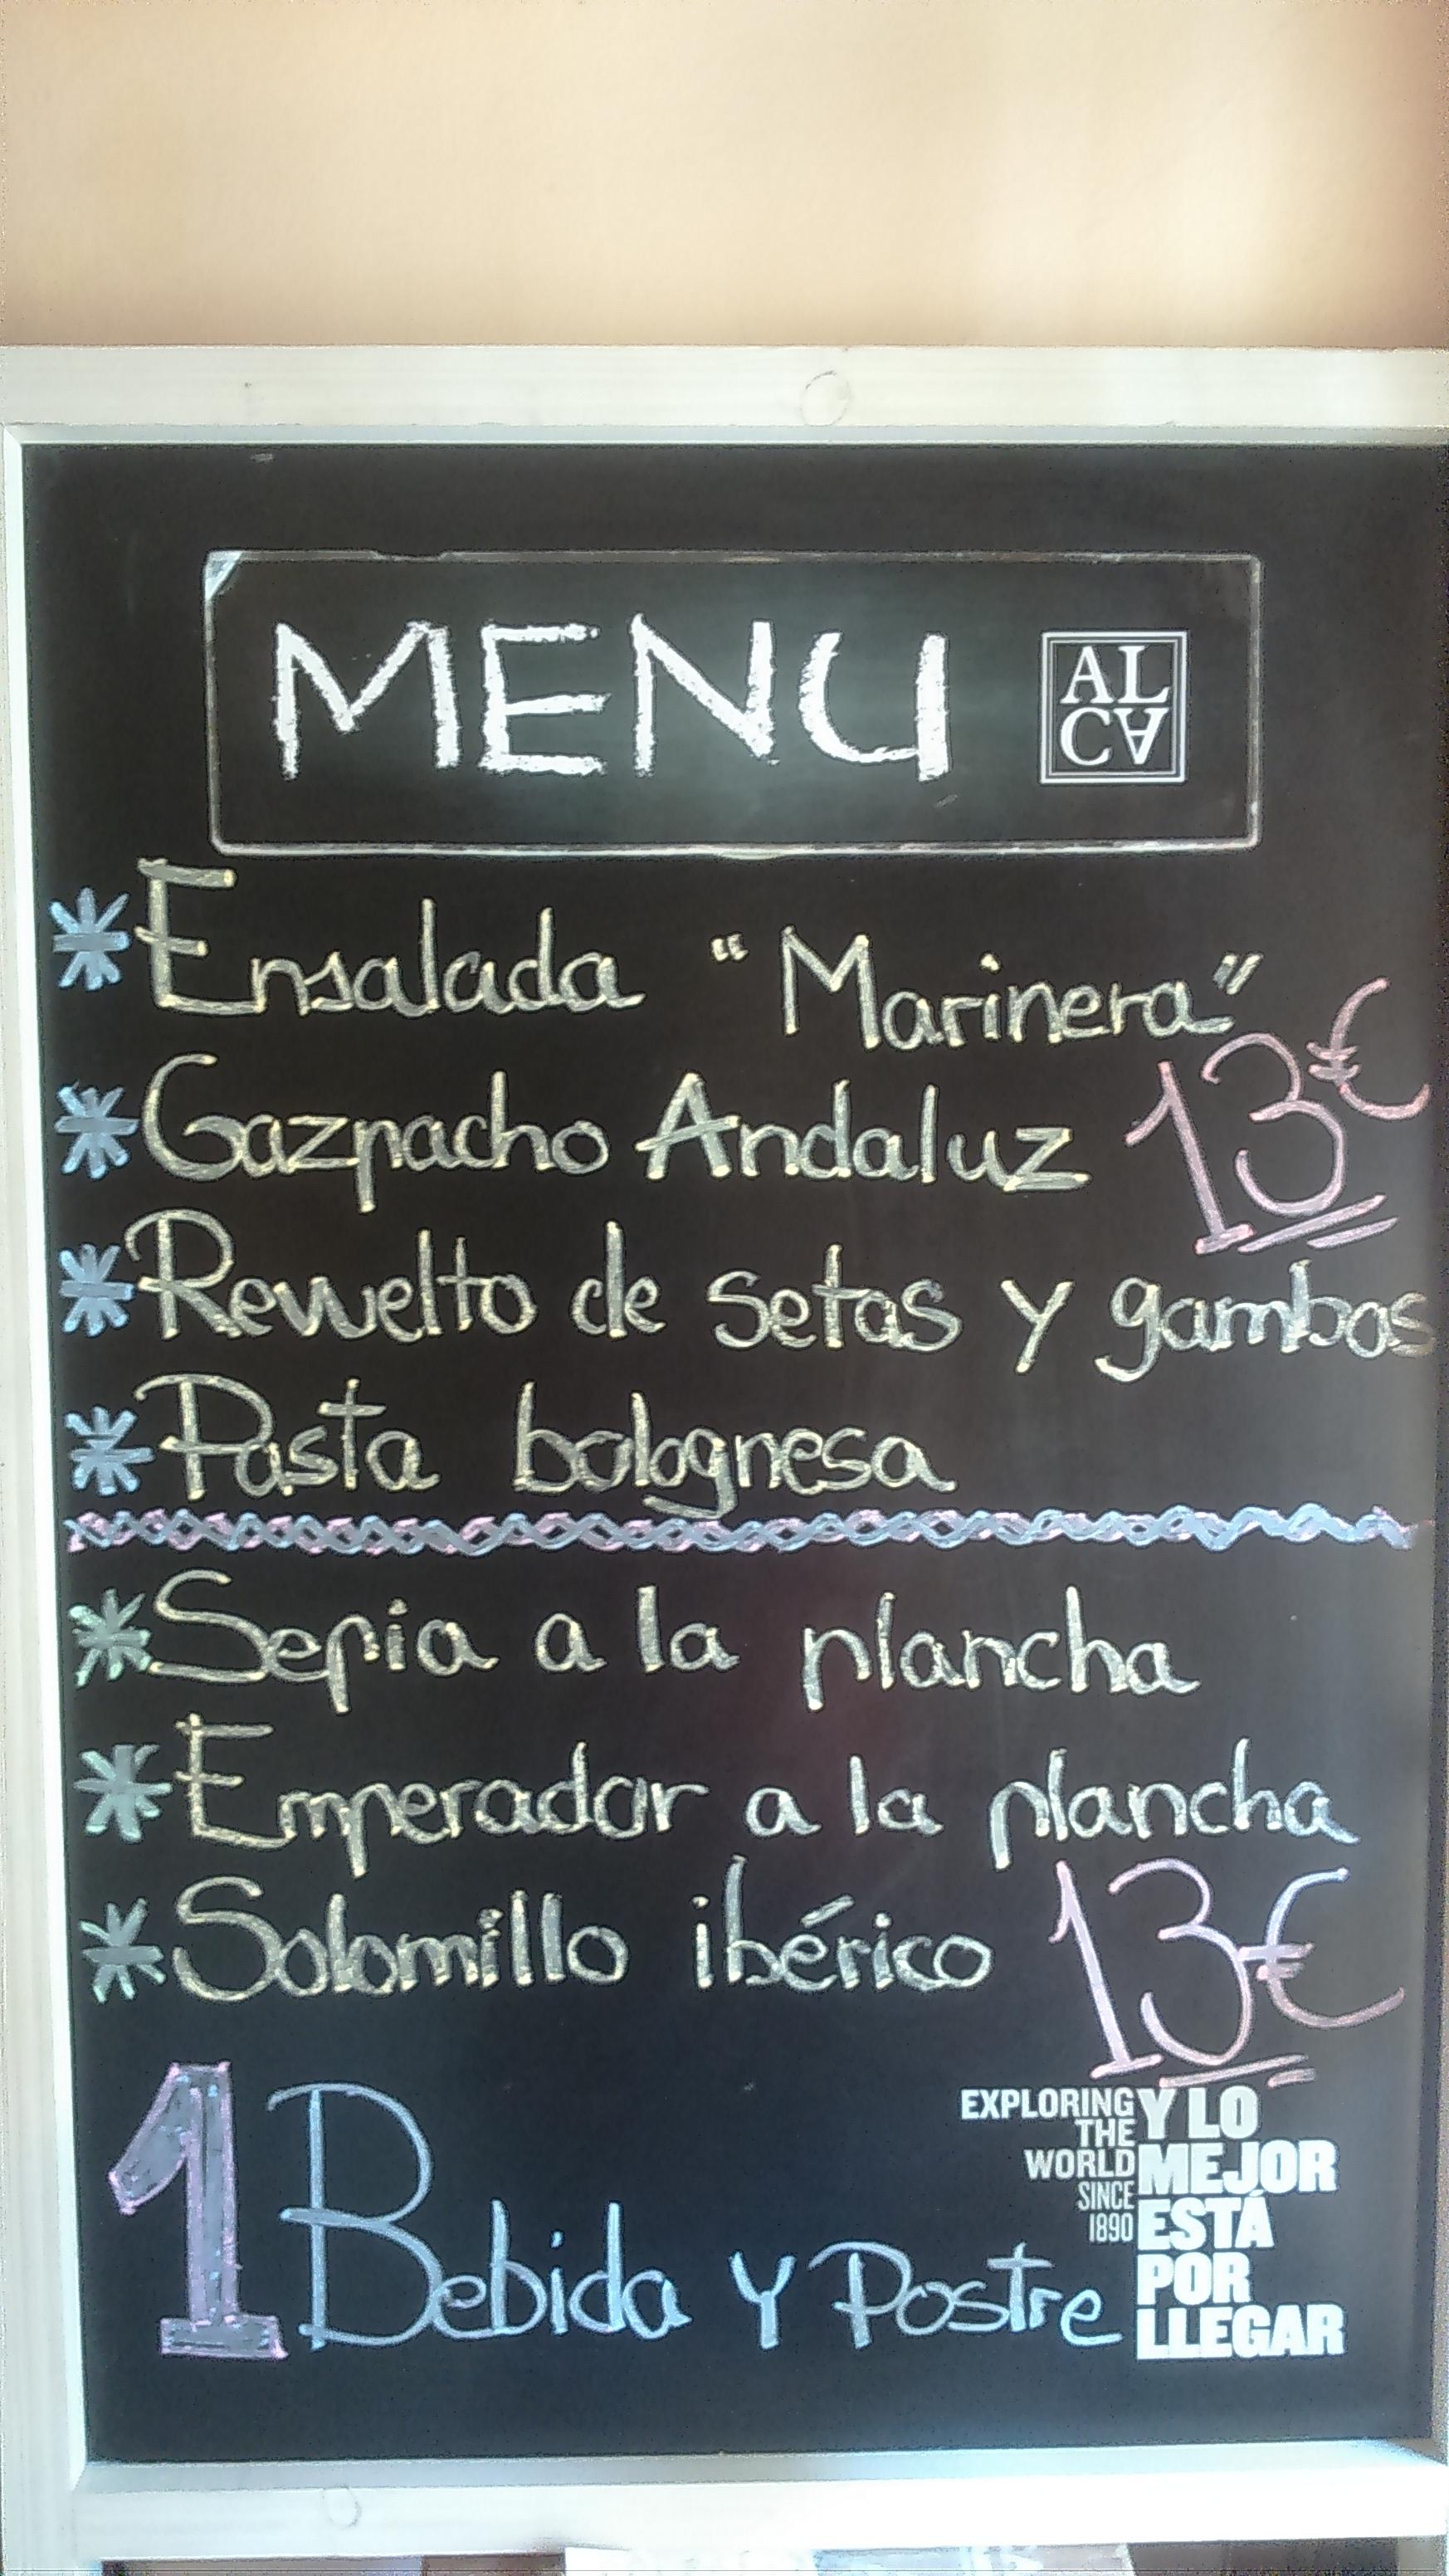 MENU
AL
CA
* Ensalada "Marinera"
* Gazpacho Andaluz 13€
* Revuelto de setas y gambas
* Pasta bolognesa
* Sepia a la plancha
* Emperador a la plancha
* Solomillo ibérico 13€
1 Bebida y Postre
EXPLORING
THE
WORLD
SINCE
1890
Y LO
MEJOR
ESTÁ
POR
LLEGAR